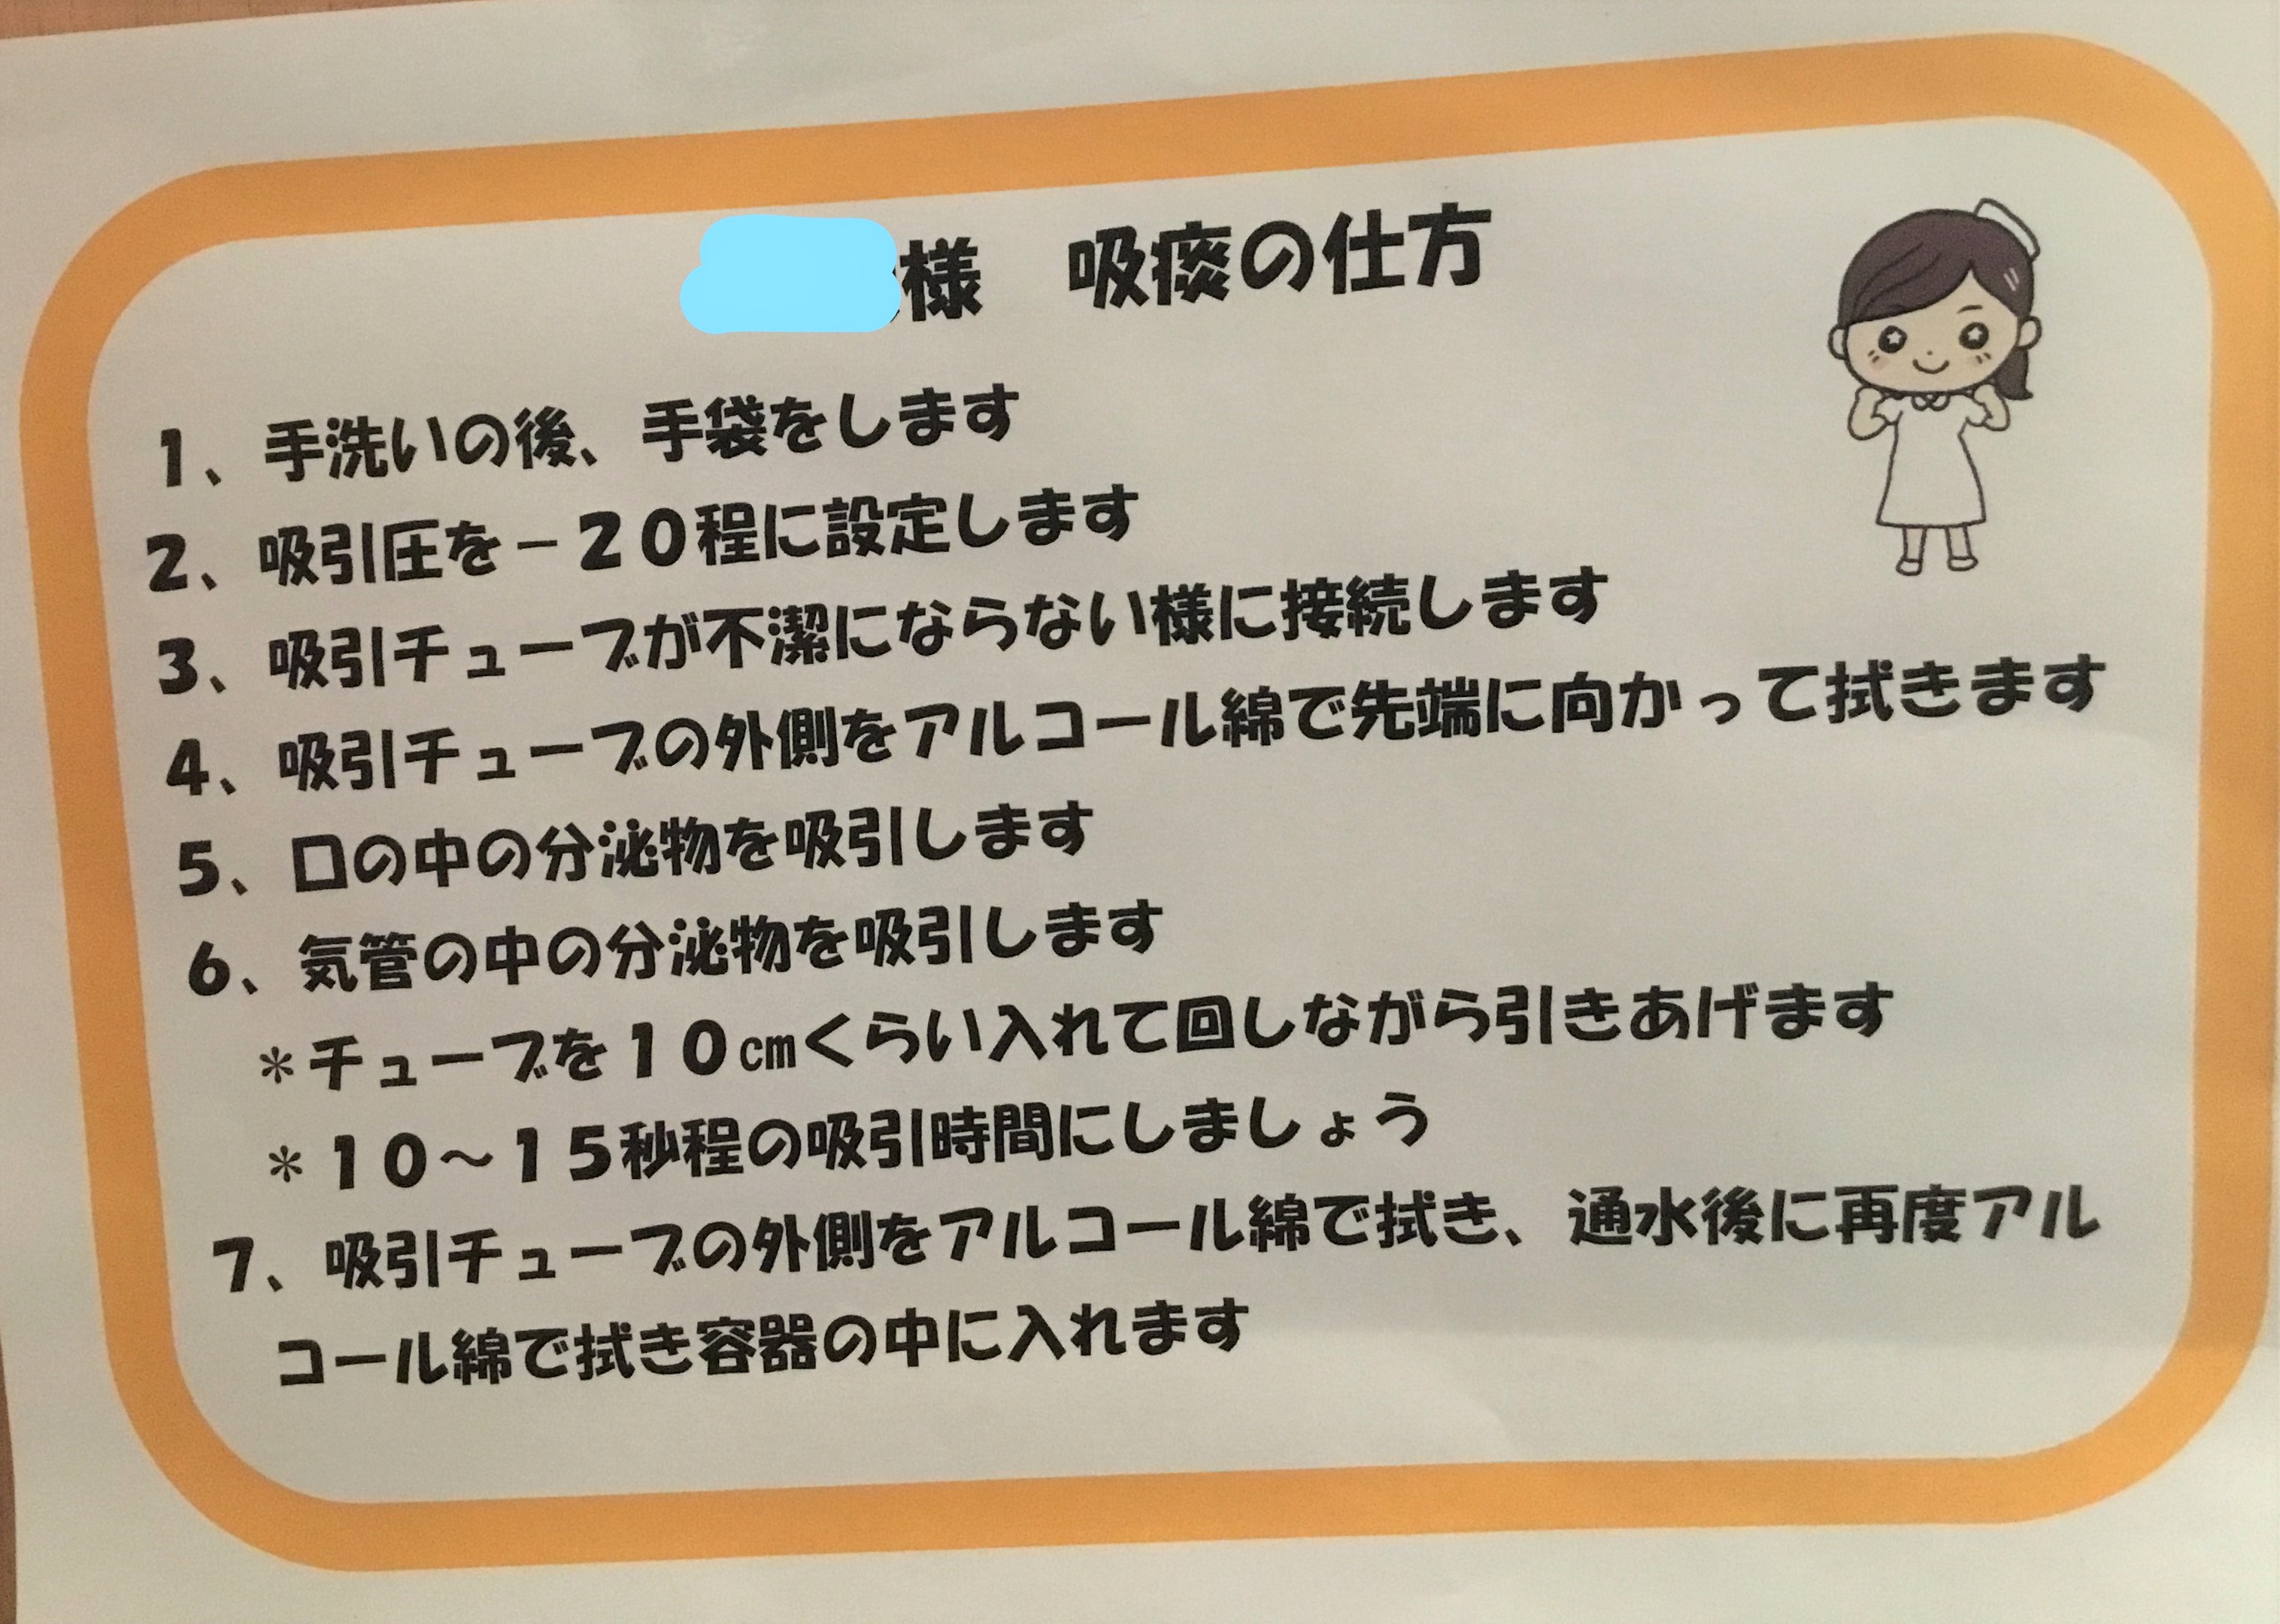 様　吸痰の仕方
1、手洗いの後、手袋をします
2、吸引圧を－20程に設定します
3、吸引チューブが不潔にならない様に接続します
4、吸引チューブの外側をアルコール綿で先端に向かって拭きます
5、口の中の分泌物を吸引します
6、気管の中の分泌物を吸引します
＊チューブを10㎝くらい入れて回しながら引きあげます
＊10～15秒程の吸引時間にしましょう
7、吸引チューブの外側をアルコール綿で拭き、通水後に再度アル
コール綿で拭き容器の中に入れます